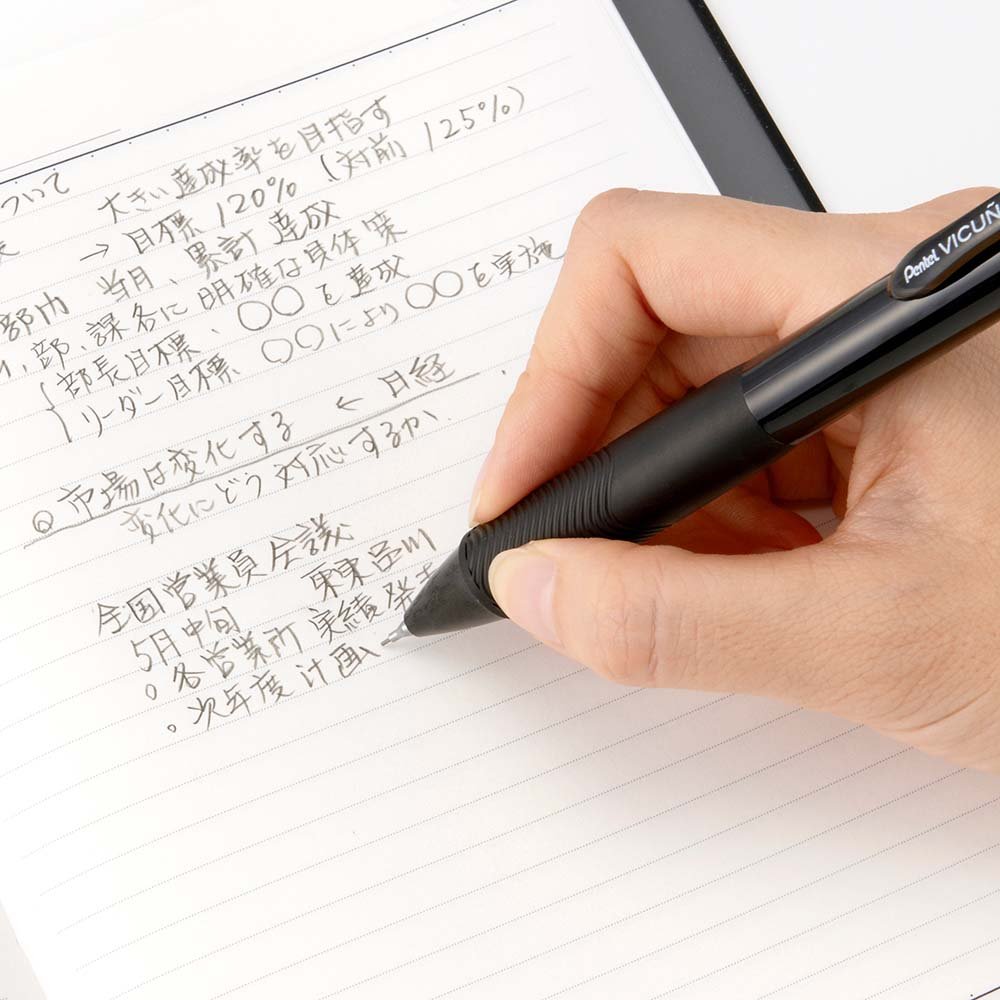 ついて 大きい達成率を目指す
→ 目標120% (対前 125%)
部内 当月、累計達成
部、課各に明確な具体策
部長目標、○○を達成
リーダー目標 ○○により○○を実施
◎市場は変化する ← 日経
変化にどう対応するか、
全国営業員会議
5月中旬 東京品川
○各営業所 実績発
○次年度計画
Pentel VICUÑ